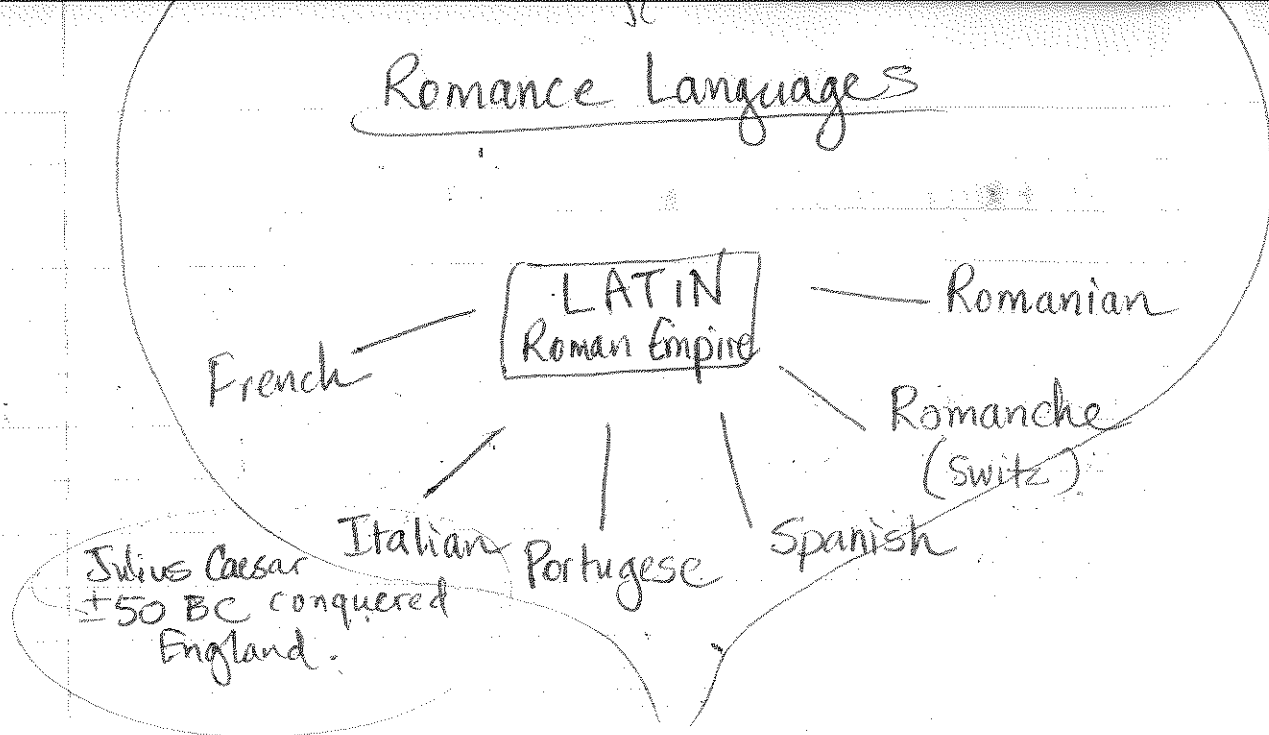 Romance Languages
LATIN
Roman Empire
Romanian
French
Romanche
(Switz)
Italian
Portugese
Spanish
Julius Caesar
±50 BC conquered
England.